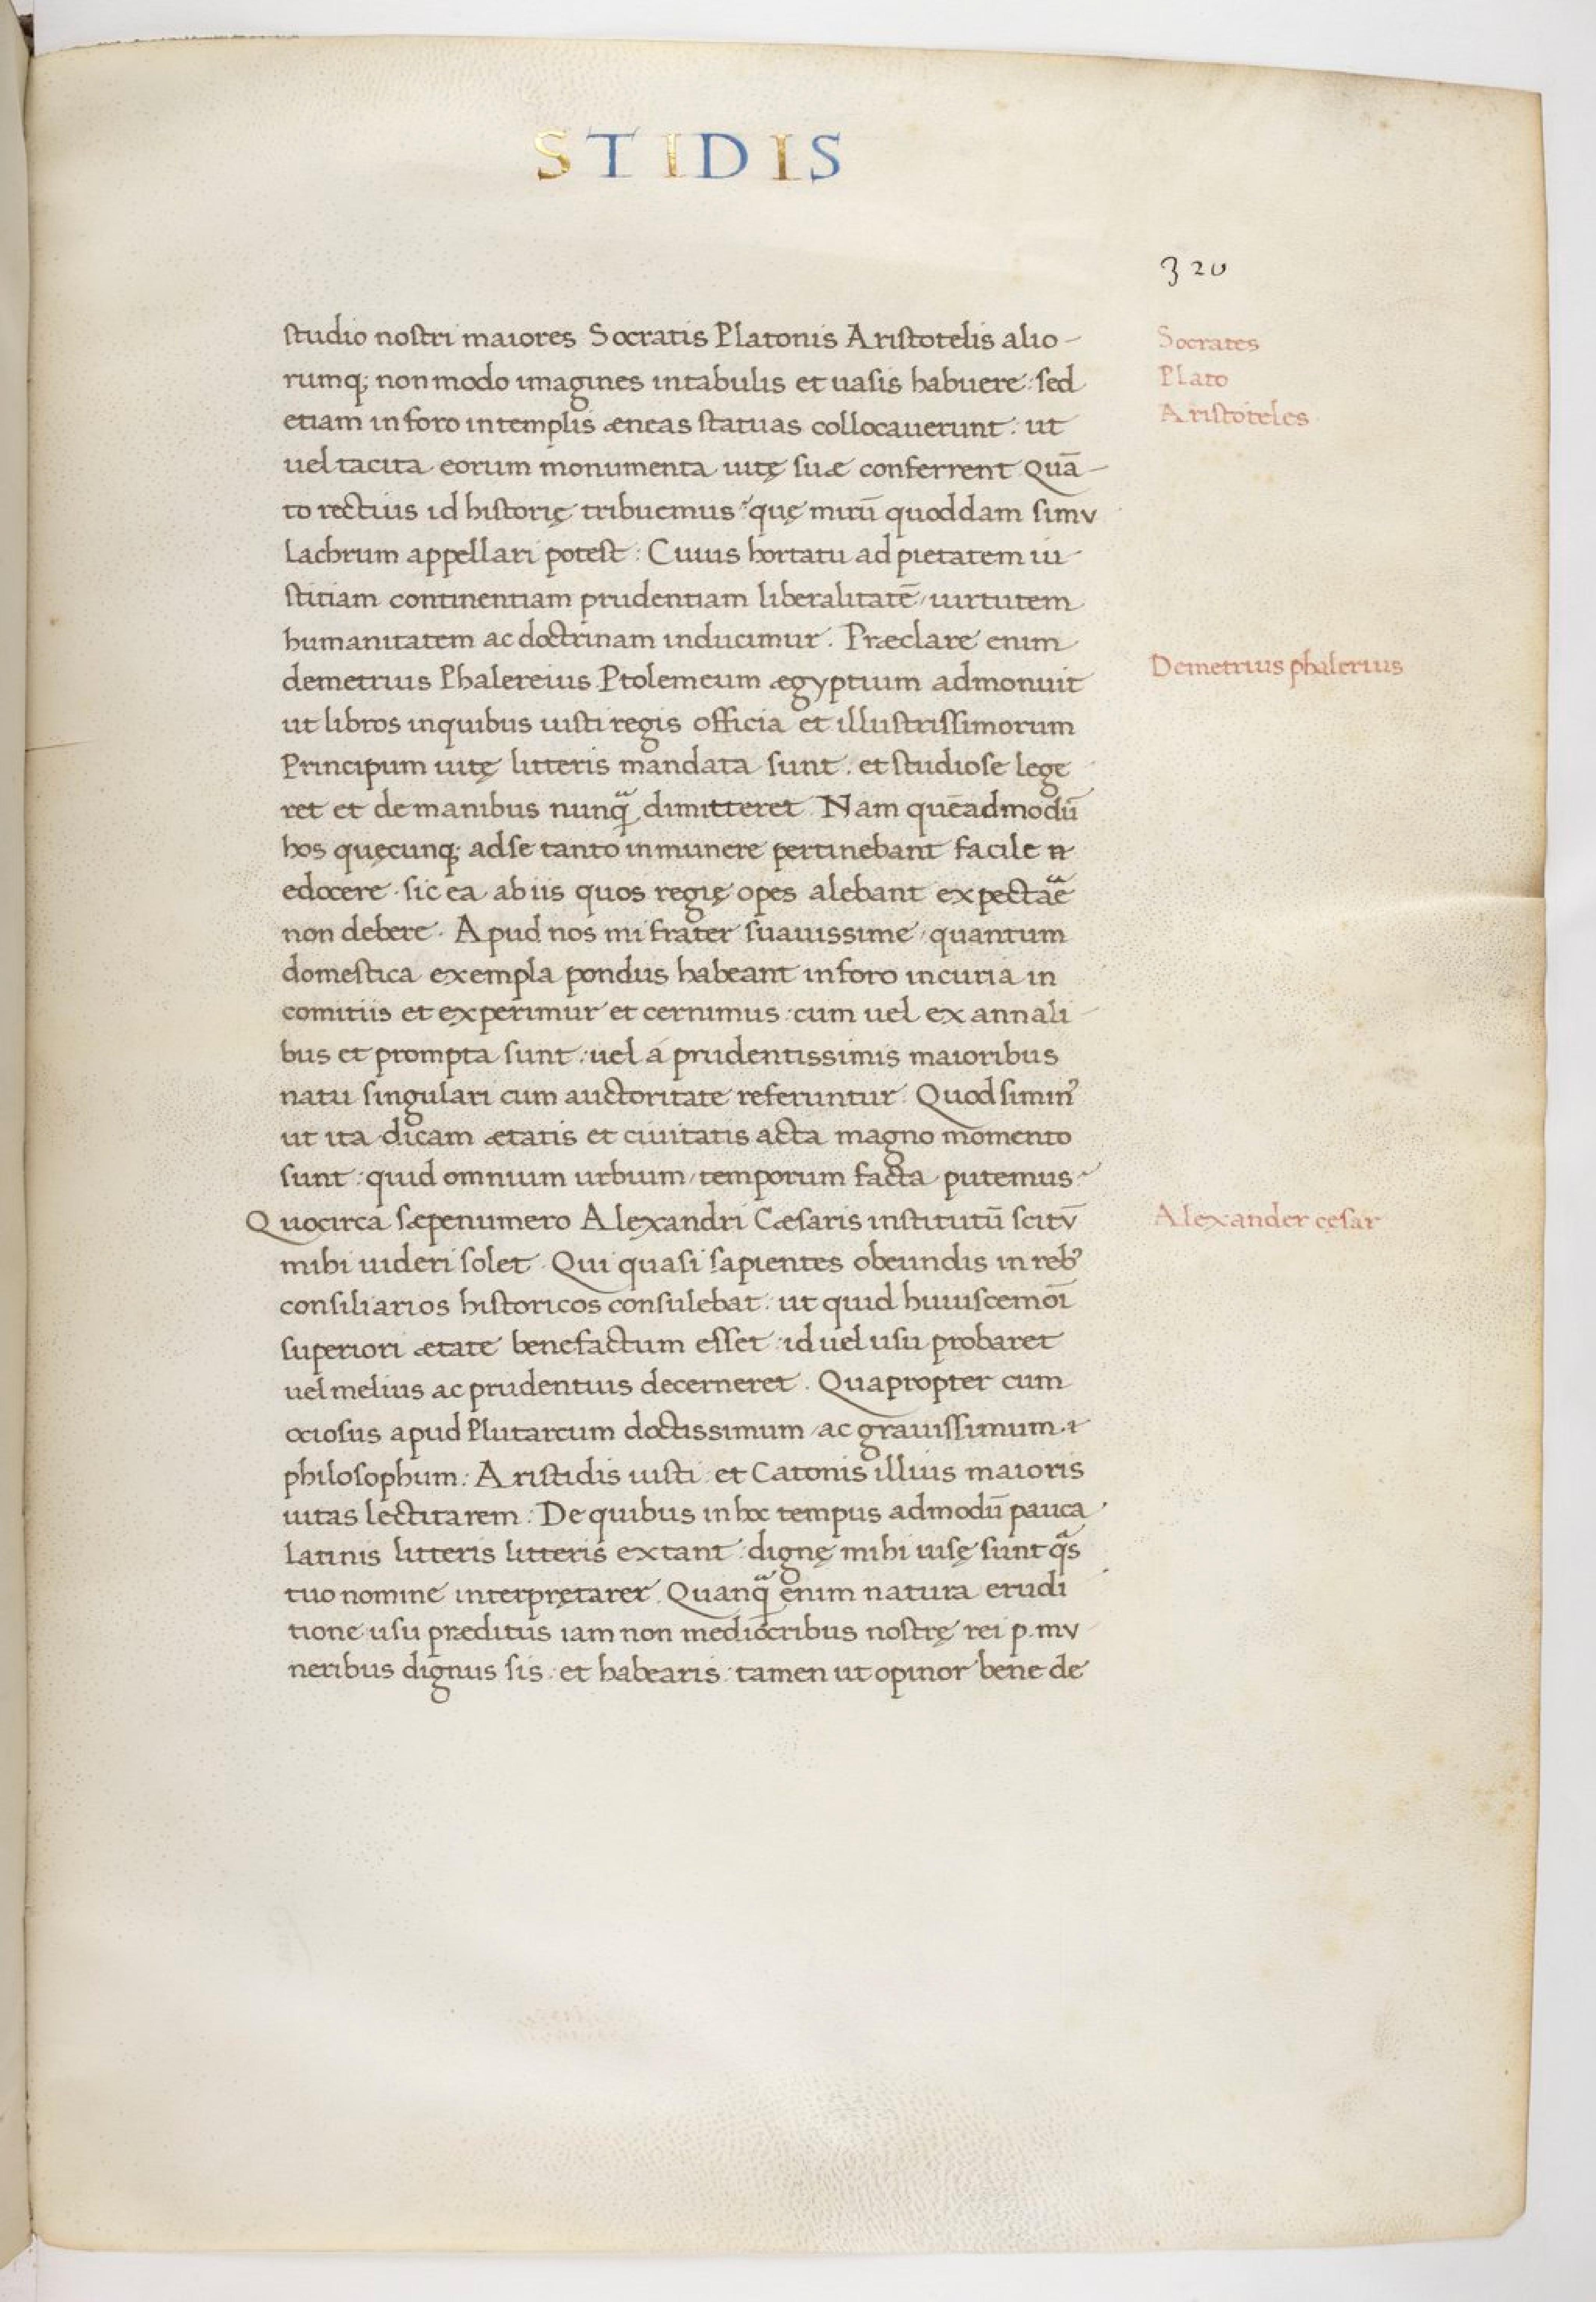 STIDIS
320
studio nostri maiores Socratis Platonis Aristotelis alio-
rumq; non modo imagines in tabulis et uasis habuere: sed
etiam in foro in templis æneas statuas collocauerunt: ut
uel tacita eorum monumenta uitę suæ conferrent Quā-
to rectius id historię tribuemus? quę mirū quoddam simu
lachrum appellari potest: Cuius hortatu ad pietatem iu-
stitiam continentiam prudentiam liberalitatē/uirtutem
humanitatem ac doctrinam inducimur. Præclare enim
demetrius Phalereius Ptolemeum ægyptium admonuit
ut libros inquibus iusti regis officia et illustrissimorum
Principum uitę litteris mandata sunt. et studiose lege
ret et de manibus nunqᷓ dimitteret. Nam quēadmodū
hos quęcunq; ad se tanto in munere pertinebant facile
edocere. sic ea ab iis quos regię opes alebant expectaᷓe
non debere. Apud nos mi frater suauissime/quantum
domestica exempla pondus habeant in foro in curia in
comitiis et experimur et cernimus: cum uel ex annali-
bus et prompta sunt: uel á prudentissimis maioribus
natu singulari cum auctoritate referuntur. Quod si minꝰ
ut ita dicam ætatis et ciuitatis acta magno momento
sunt: quid omnium urbium/temporum facta putemus?
Quocirca sæpenumero Alexandri Cæsaris institutū scitū
mihi uideri solet. Qui quasi sapientes obeundis in rebꝰ
consiliarios historicos consulebat: ut quid huiuscemoī
superiori ætate benefactum esset: id uel usu probaret
uel melius ac prudentius decerneret. Quapropter cum
ociosus apud Plutarcum doctissimum/ac grauissimum
philosophum: Aristidis iusti et Catonis illius maioris
uitas lectitarem: De quibus in hoc tempus admodū pauca
Latinis litteris litteris extant: dignę mihi uisę sunt qᷓs
tuo nomine interpretarer. Quanqᷓ enim natura erudi-
tione usu præditus iam non mediocribus nostrę rei p. mu-
neribus dignus sis: et habearis: tamen ut opinor bene de
Socrates
Plato
Aristoteles
Demetrius phalerius
Alexander cęsar